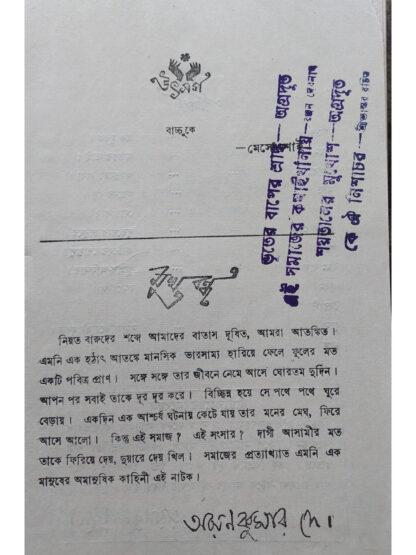 উৎসর্গ
বাচ্চুকে
ভূতের বাপের শ্রাদ্ধ—অগ্রদূত
এই সমাজের কসাইখানায়—রঞ্জন দেবনাথ
শয়তানের মুখোশ—অগ্রদূত
কে ঐ নিশাচর—
মুখবন্ধ
নিয়ত বারুদের শব্দে আমাদের বাতাস দূষিত, আমরা আতঙ্কিত।
এমনি এক হঠাৎ আতঙ্কে মানসিক ভারসাম্য হারিয়ে ফেলে ফুলের মত
একটি পবিত্র প্রাণ। সঙ্গে সঙ্গে তার জীবনে নেমে আসে ঘোরতম দুর্দিন।
আপন পর সবাই তাকে দূর দূর করে। বিচ্ছিন্ন হয়ে সে পথে পথে ঘুরে
বেড়ায়। একদিন এক আশ্চর্য ঘটনায় কেটে যায় তার মনের মেঘ, ফিরে
আসে আলো। কিন্তু এই সমাজ? এই সংসার? দাগী আসামীর মত
তাকে ফিরিয়ে দেয়, দুয়ারে দেয় খিল। সমাজের প্রত্যাখ্যাত এমনি এক
মানুষের অমানুষিক কাহিনী এই নাটক।
অরুণকুমার দে।